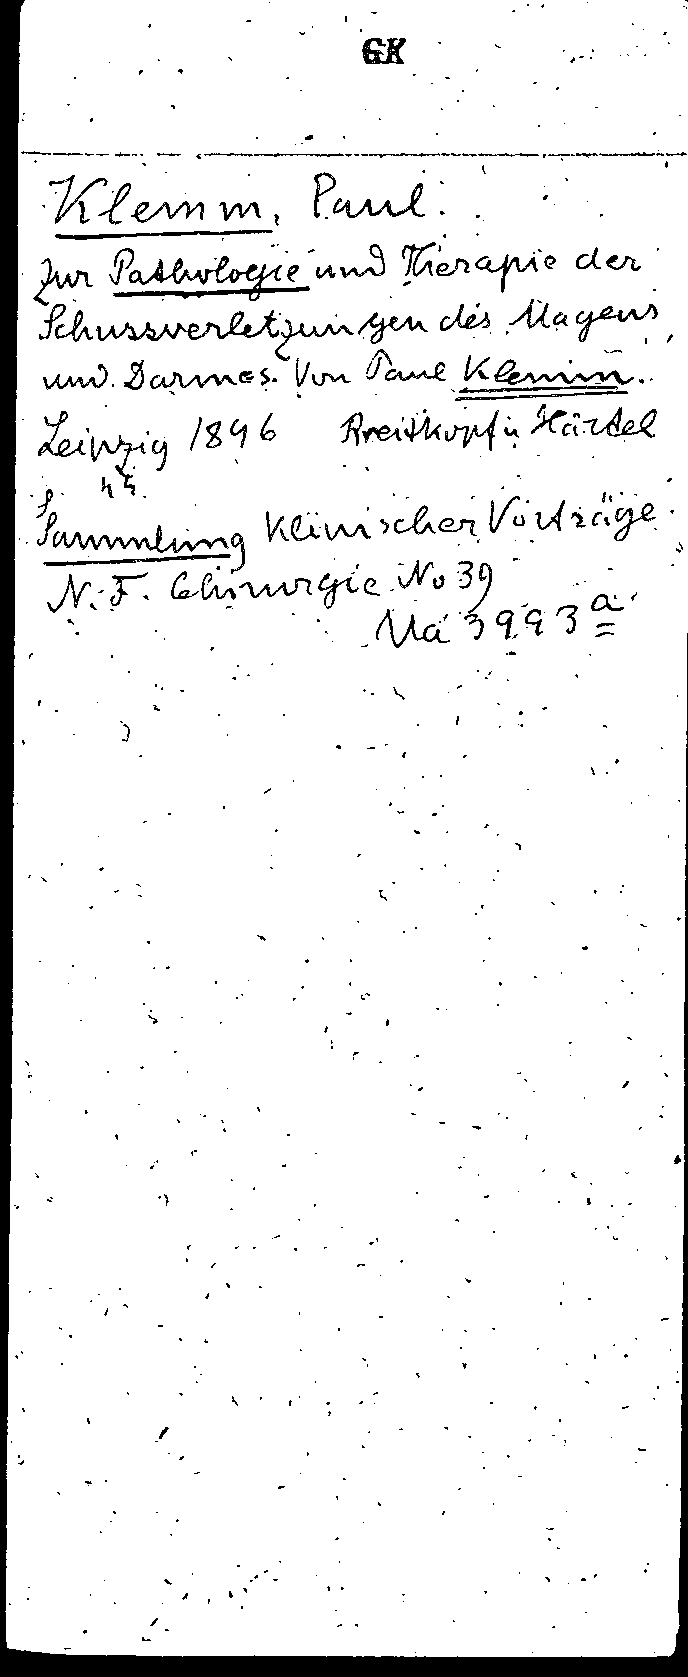 GK
Klemm, Paul.
Zur Pathologie und Therapie der
Schussverletzungen des Magens
und Darmes. Von Paul Klemm.
Leipzig 1896 Breitkopf u Härtel
Sammlung Klinischer Vorträge
N. F. Chirurgie No 39
Ma 3993 a